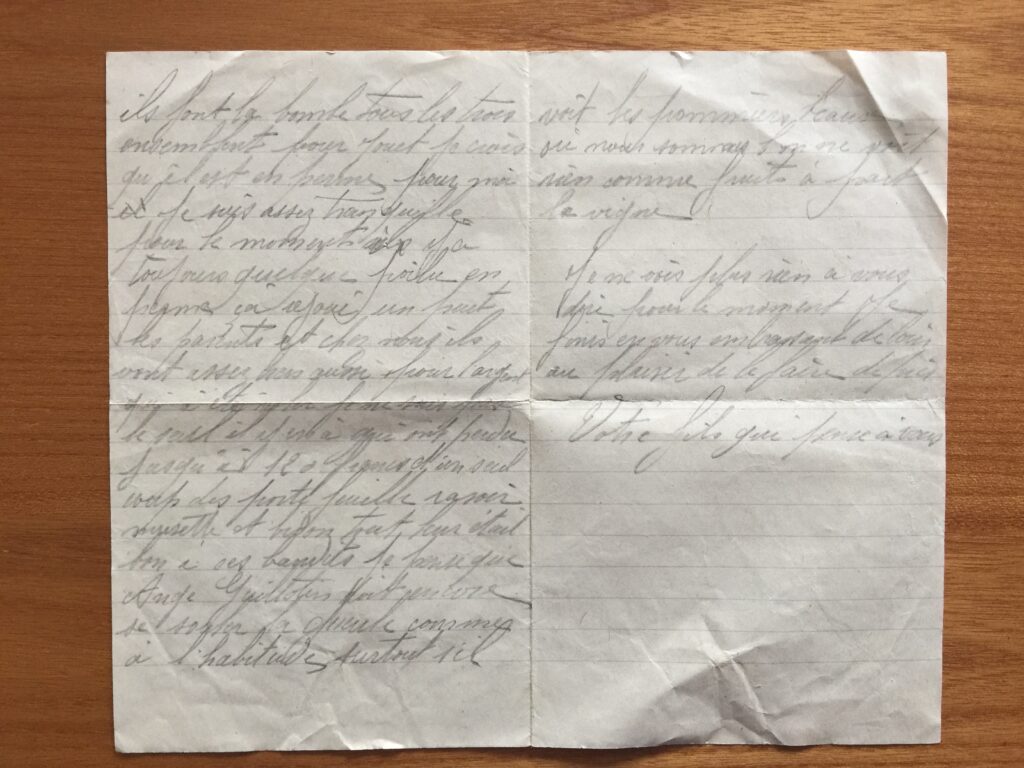 ils font la bombe tous les trois
ensemble pour je crois
qu'il est en perme, pour moi
je suis assez tranquille
pour le moment il y a
toujours quelque poilu en
perme ça un peut
les parents et chez nous ils
vont assez bien pour l'argent
qui a été je ne suis pas
le seul il y en a qui ont perdu
jusqu'à 120 francs d'un seul
coup des porte feuille rasoir
musette et bidon tout leur était
bon à ces bandits je pense que
Ange Guillotin doit encore
se la gueule comme
à l'habitude, surtout s'il
voit les pommiers beaux
où nous sommes on ne voit
rien comme fruits à part
la vigne
Je ne vois plus rien à vous
dire pour le moment je
finis en vous embrassant de loin
au plaisir de le faire de près
Votre fils qui pense à vous